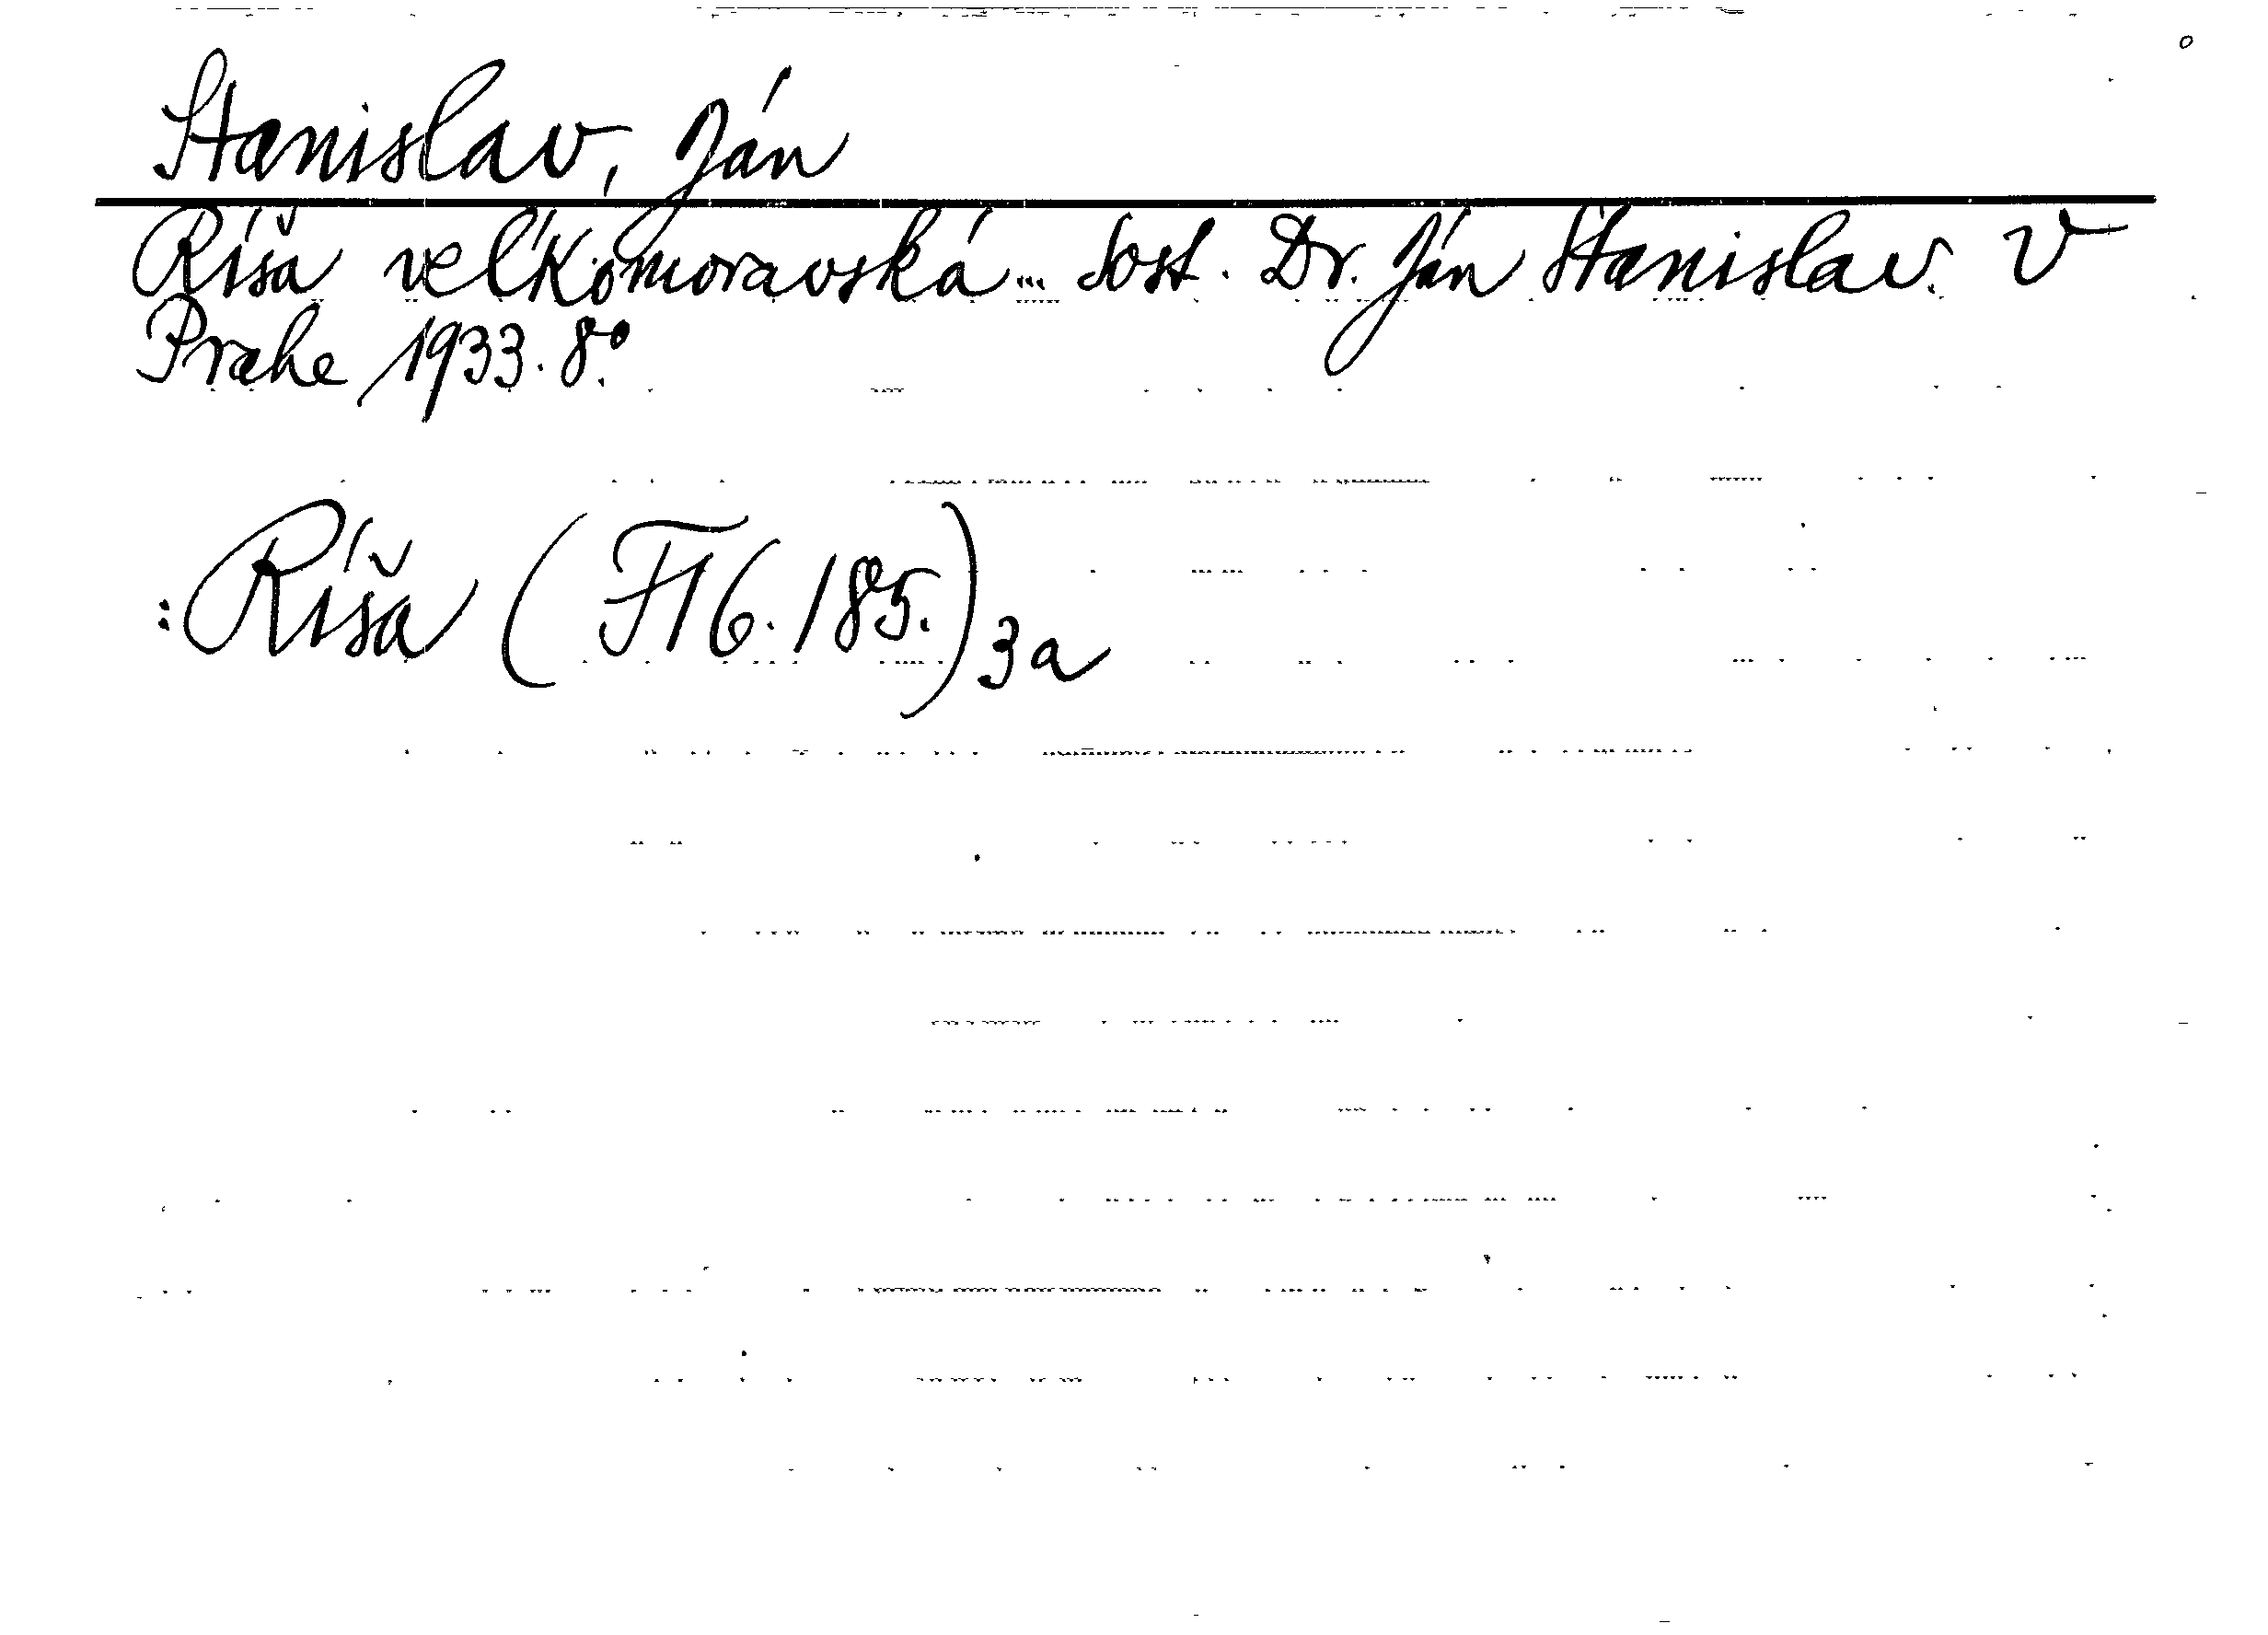 Stanislav, Ján
Ríša veľkomoravská... Sost. Dr. Ján Stanislav. V
Prahe 1933. 8°.
: Ríša (F 16.185.) 3a